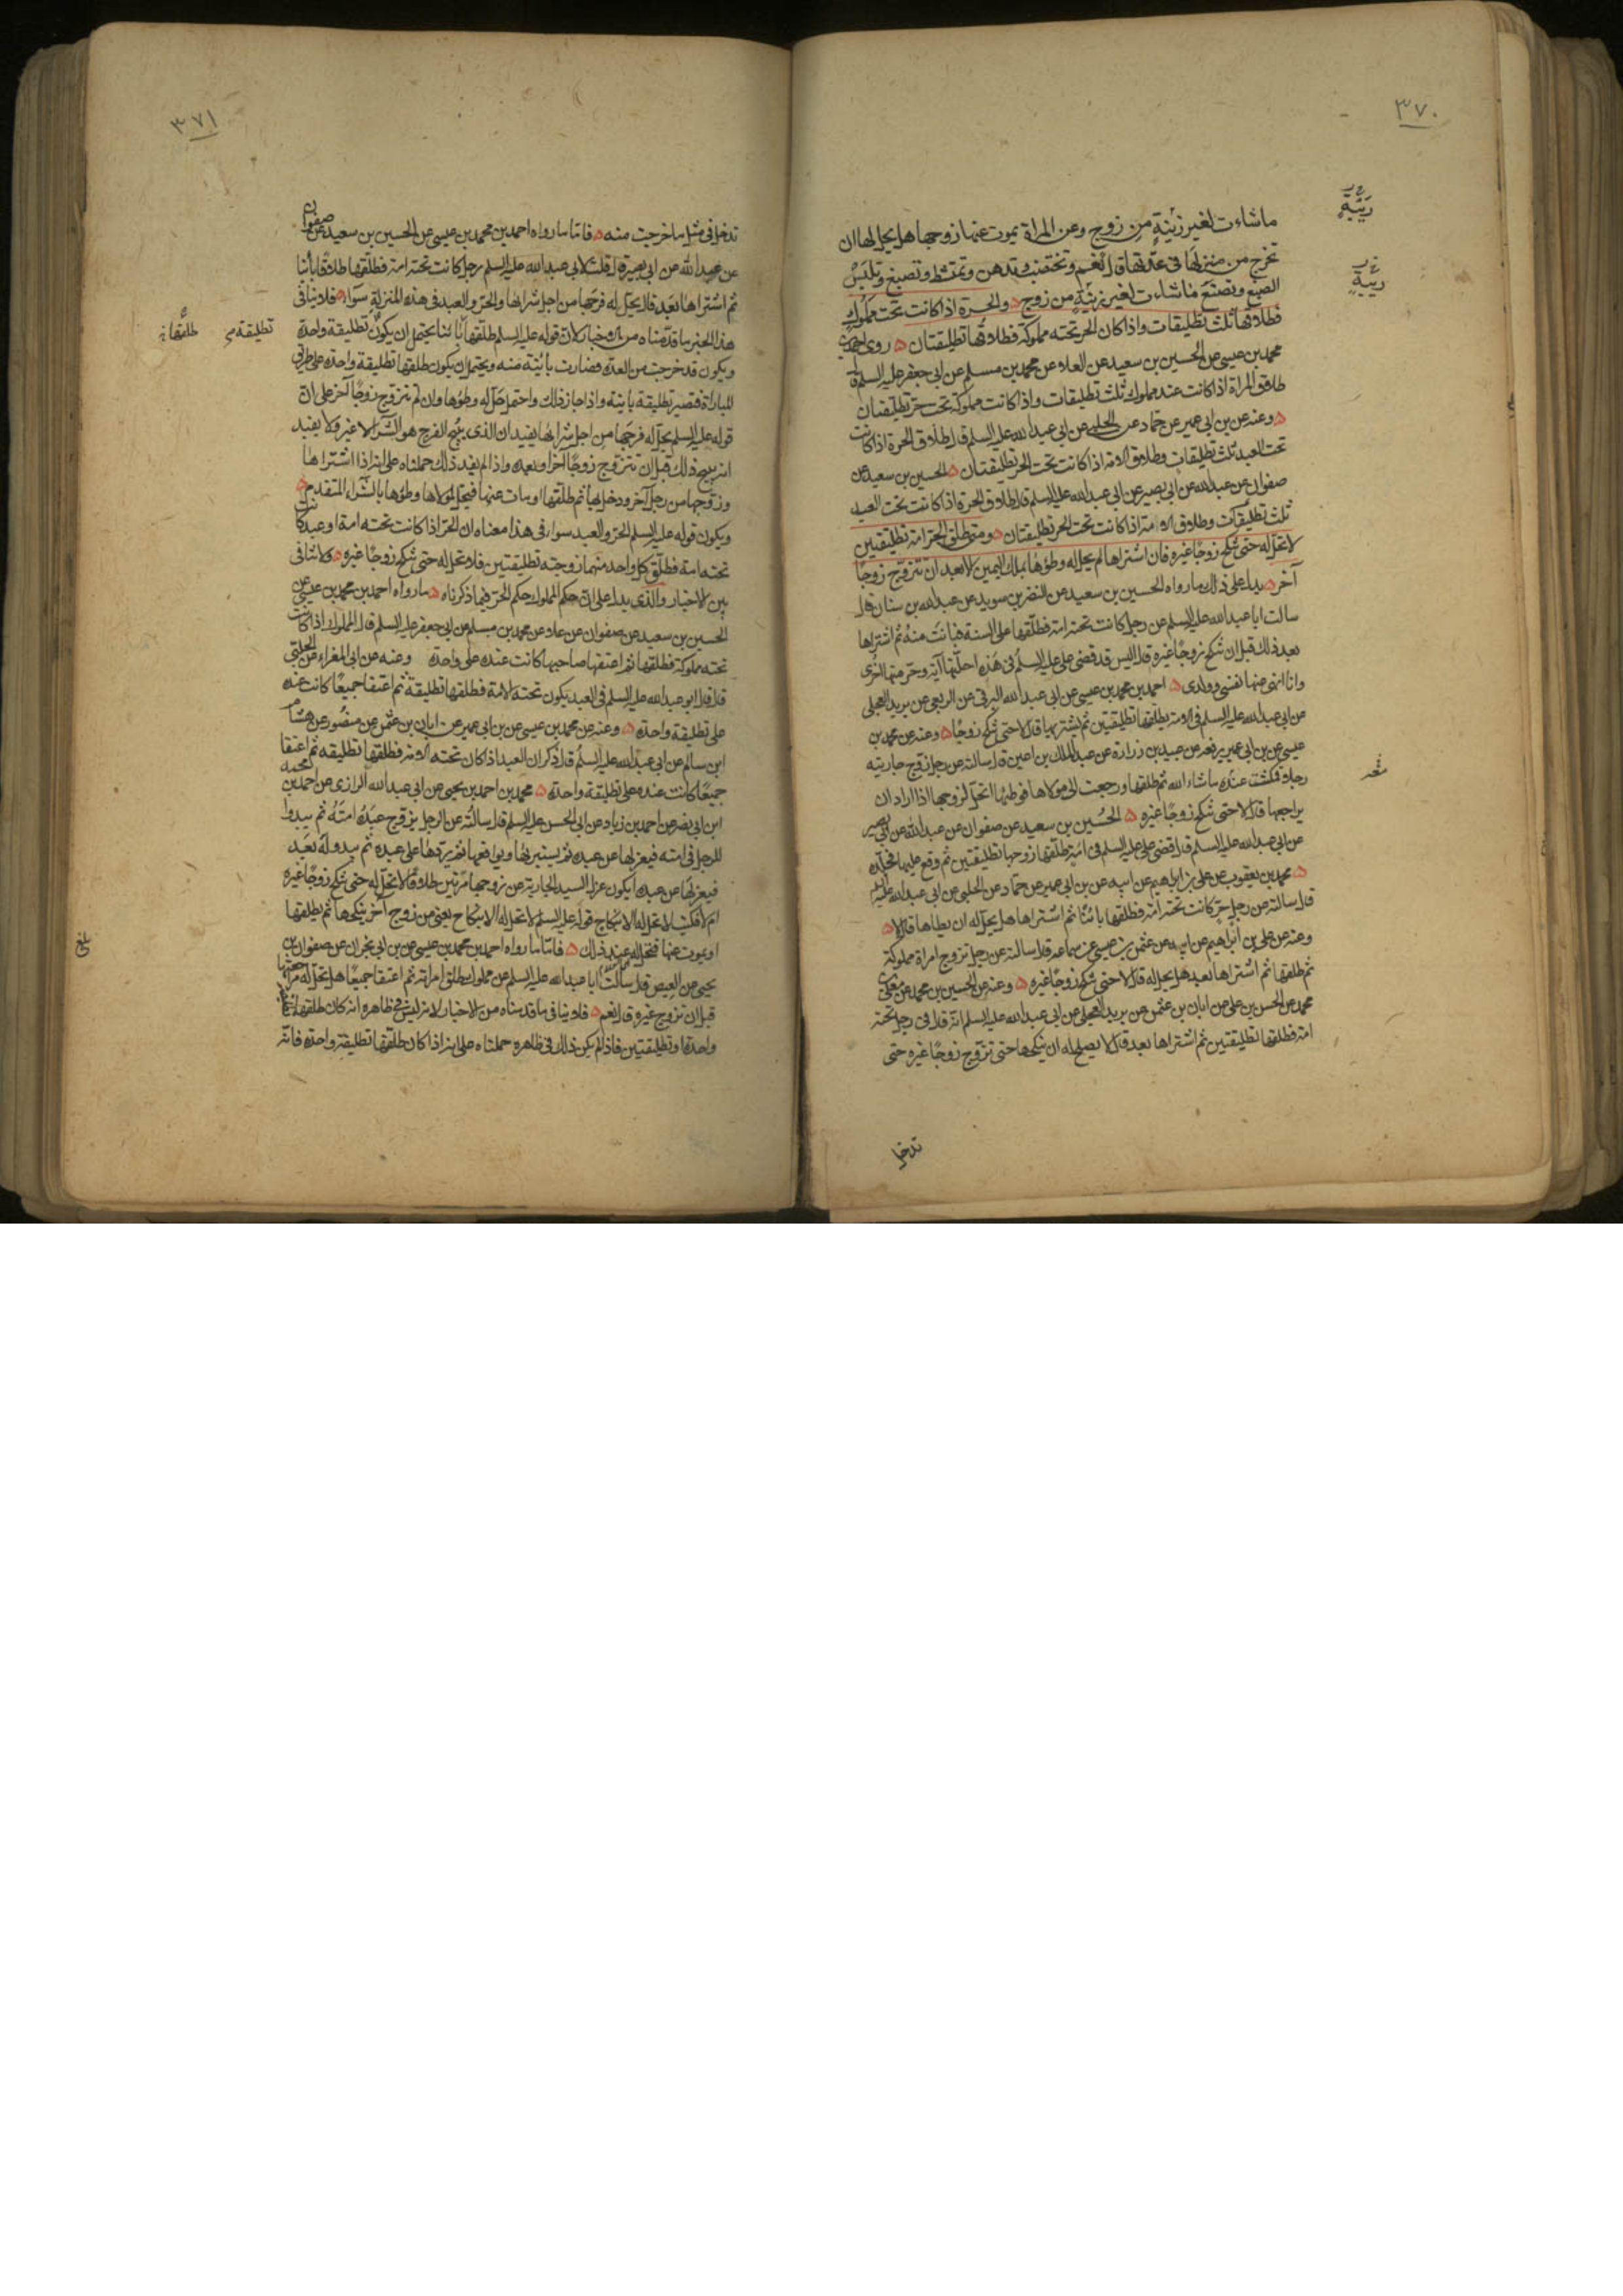 ٣٧٠
ما شاءت لغير زينة من زوج وعن المراة يموت عنها زوجها هل يحل لها ان
تخرج من منزلها في عدتها قال نعم وتختضب وتدهن وتمتشط وتصبغ وتلبس
الصبغ وتصنع ما شاءت لغير زينة من زوج والحرة اذا كانت تحت مملوك
فطلاقها ثلث تطليقات واذا كان الحر تحته مملوكة فطلاقها تطليقتان روى احمد بن
محمد بن عيسى عن الحسين بن سعيد عن العلاء عن محمد بن مسلم عن ابي جعفر عليه السلم قال
طلاق المراة اذا كانت عند مملوك ثلث تطليقات واذا كانت مملوكة تحت حر تطليقتان
وعنه عن بن ابي عمير عن حماد عن الحلبي عن ابي عبد الله عليه السلم قال طلاق الحرة اذا كانت
تحت العبد ثلث تطليقات وطلاق الامة اذا كانت تحت الحر تطليقتان الحسين بن سعيد عن
صفوان عن عبد الله عن ابي بصير عن ابي عبد الله عليه السلم قال طلاق الحرة اذا كانت تحت العبد
ثلث تطليقات وطلاق الامة اذا كانت تحت الحر تطليقتان ومتى طلق الحر امة تطليقتين
لا تحل له حتى تنكح زوجا غيره فان اشتراها لم يحل له وطؤها بملك اليمين الا بعد ان تتزوج زوجا
آخر يدل على ذلك ما رواه الحسين بن سعيد عن النضر بن سويد عن عبد الله بن سنان قال
سالت ابا عبد الله عليه السلم عن رجل كانت تحته امة فطلقها على السنة فبانت منه ثم اشتراها
بعد ذلك قبل ان تنكح زوجا غيره قال اليس قد قضى علي عليه السلم في هذه احلتها آية وحرمتها اخرى
وانا انهى عنها نفسي وولدي احمد بن محمد بن عيسى عن ابي عبد الله البرقي عن الربعي عن بريد العجلي
عن ابي عبد الله عليه السلم في الامة يطلقها تطليقتين ثم يشتريها قال لا حتى تنكح زوجا وعنه عن محمد بن
عيسى عن بن ابي عمير يرفعه عن عبيد بن زرارة عن عبد الملك بن اعين قال سالته عن رجل زوج جاريته
رجلا فمكثت عنده ما شاء الله ثم طلقها ورجعت الى مولاها فوطئها اتحل لزوجها اذا اراد ان
يراجعها قال لا حتى تنكح زوجا غيره الحسين بن سعيد عن صفوان عن عبد الله عن ابي بصير
عن ابي عبد الله عليه السلم قال قضى علي عليه السلم في امة طلقها زوجها تطليقتين ثم وقع عليها فجلده
محمد بن يعقوب عن علي بن ابراهيم عن ابيه عن بن ابي عمير عن حماد عن الحلبي عن ابي عبد الله عليه السلم
قال سالته عن رجل حر كانت تحته امة فطلقها بائنا ثم اشتراها هل يحل له ان يطاها قال لا
وعنه عن علي بن ابراهيم عن ابيه عن عثمن بن عيسى عن سماعه قال سالته عن رجل تزوج امراة مملوكة
ثم طلقها ثم اشتراها بعد هل يحل له قال لا حتى تنكح زوجا غيره وعنه عن الحسين بن محمد عن معلى بن
محمد عن الحسن بن علي عن ابان بن عثمن عن بريد العجلي عن ابي عبد الله عليه السلم انه قال في رجل تحته
امة فطلقها تطليقتين ثم اشتراها بعد قال لا يصلح له ان ينكحها حتى تزوج زوجا غيره حتى
تدخل
٣٧١
تدخل في مثل ما خرجت منه فاما ما رواه احمد بن محمد بن عيسى عن الحسين بن سعيد عن صفوان
عن عبد الله عن ابي بصير قال قلت لابي عبد الله عليه السلم رجل كانت تحته امة فطلقها طلاقا بائنا
ثم اشتراها بعد قال يحل له فرجها من اجل شرائها والحر والعبد في هذه المنزلة سواء فلا ينافي
هذا الخبر ما قدمناه من الاخبار لان قوله عليه السلم طلقها بائنا يحتمل ان يكون تطليقة واحدة
تطليقة طلقها
ويكون قد خرجت من العدة فصارت بائنة منه ويحتمل ان يكون طلقها تطليقة واحدة على طريق
المباراة فتصير تطليقة بائنة واذا جاز ذلك واحتمل حل له وطؤها وان لم تتزوج زوجا آخر على ان
قوله عليه السلم يحل له فرجها من اجل شرائها يفيد ان الذي يبيح الفرج هو الشراء لا غير ولا يفيد
انه يبيح ذلك قبل ان تتزوج زوجا آخر او بعده واذا لم يفد ذلك حملناه على انه اذا اشتراها
وزوجها من رجل آخر ودخل بها ثم طلقها او مات عنها فيحل لمولاها وطؤها بالشراء المتقدم
ويكون قوله عليه السلم الحر والعبد سواء في هذا معناه ان الحر اذا كانت تحته امة او عبد كانت
تحته امة فطلق كل واحد منهما زوجته تطليقتين فلا تحل له حتى تنكح زوجا غيره ولا تنافي
بين الاخبار والذي يدل على ان حكم المملوك حكم الحر فيما ذكرناه ما رواه احمد بن محمد بن عيسى عن
الحسين بن سعيد عن صفوان عن علاء عن محمد بن مسلم عن ابي جعفر عليه السلم قال المملوك اذا كانت
تحته مملوكة فطلقها ثم اعتقها صاحبها كانت عنده على واحدة وعنه عن ابي المغراء عن الحلبي
قال قال ابو عبد الله عليه السلم في العبد يكون تحته الامة فطلقها تطليقة ثم اعتقا جميعا كانت عنده
على تطليقة واحدة وعنه عن محمد بن عيسى عن بن ابي عمير عن ابان بن عثمن عن منصور عن هشام
ابن سالم عن ابي عبد الله عليه السلم قال ذكر ان العبد اذا كان تحته الامة فطلقها تطليقه ثم اعتقا
جميعا كانت عنده على تطليقة واحدة محمد بن احمد بن يحيى عن ابي عبد الله الرازي عن احمد بن محمد
ابن ابي نصر عن احمد بن زياد عن ابي الحسن عليه السلم قال سالته عن الرجل يزوج عبده امته ثم يبدوا
للرجل في امته فيعزلها عن عبده ثم يستبرئها ويواقعها ثم يردها على عبده ثم يبدو له بعد
فيعزلها عن عبده ايكون عزل السيد الجارية عن زوجها مرتين طلاقا لا تحل له حتى تنكح زوجا غيره
ام لا فكتب لا تحل له الا بنكاح قوله عليه السلم لا تحل له الا بنكاح يعني من زوج آخر ينكحها ثم يطلقها
او يموت عنها فتحل له عند ذلك فاما ما رواه احمد بن محمد بن عيسى عن بن ابي نجران عن صفوان بن
يحيى عن العيص قال سالت ابا عبد الله عليه السلم عن مملوك طلق امراته ثم اعتقا جميعا هل يحل له مراجعتها
قبل ان تزوج غيره قال نعم فلا ينافي ما قدمناه من الاخبار لانه ليس في ظاهره انه كان طلقها
واحدة او تطليقتين فاذا لم يكن ذلك في ظاهره حملناه على انه اذا كان طلقها تطليقة واحدة فانه
بلغ